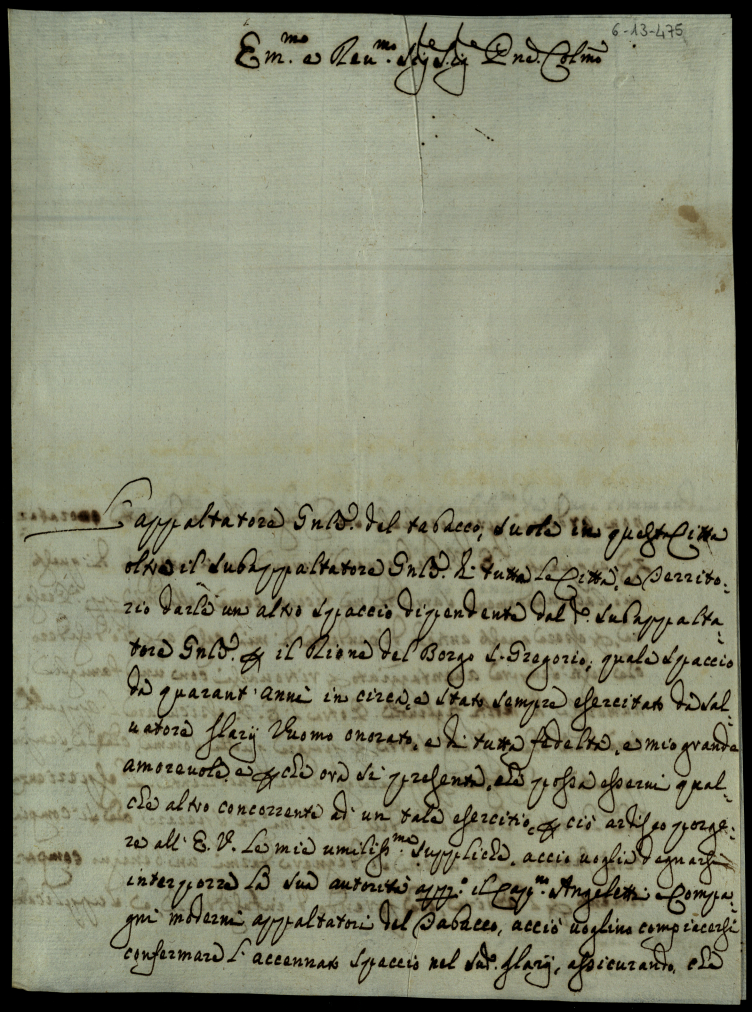 6-13-475
Em.mo e Reu.mo Sig.re Sig.re Pnē. Colmo
L'appaltatore Gnlē. del tabacco, suole in questa Città
oltre il subappaltatore Gnlē. di tutta la Città, e Territo-
rio darle un altro spaccio dipendente dal d.o subappalta-
tore Gnlē. per il Rione del Borgo S. Gregorio, quale spaccio
da quarant'anni in circa, e stato sempre esercitato da Sal-
uatore Ilarij Vuomo onorato, e di tutta fedeltà, e mio grande
amoreuole, e perche ora si presente, che possa esserui qual-
che altro concorrente ad un tale esercitio, per ciò ardisco porge-
re all'E. V. le mie umiliss.me suppliche, acciò uoglia degnarsi
interporre la sua autorità app.o il Cap.no Angeletti e Compa-
gni moderni appaltatori del Tabacco, acciò uoglino compiacersi
confermare l'accennato spaccio nel sud.o Ilarij, assicurando, che